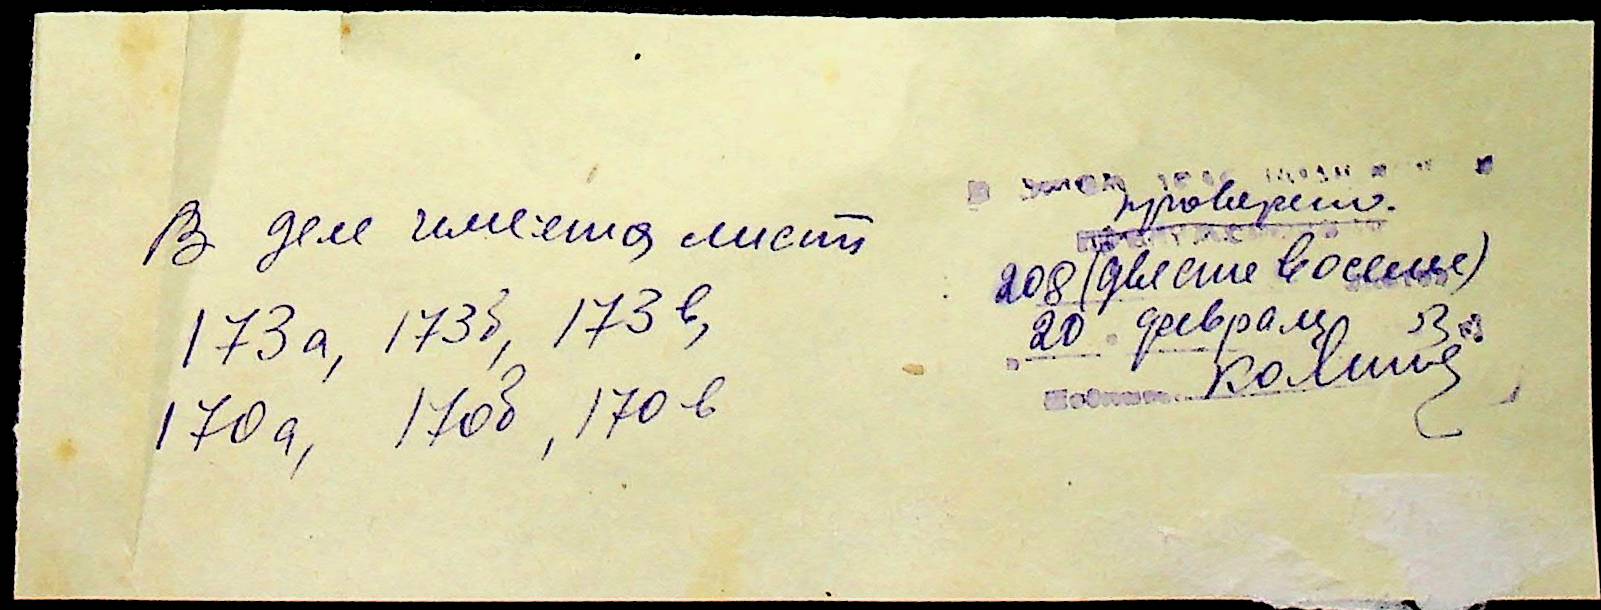 В деле имеется листы
173а, 173б, 173в,
170а, 170б, 170в
проверено.
208 (двести восемь)
20 февраля